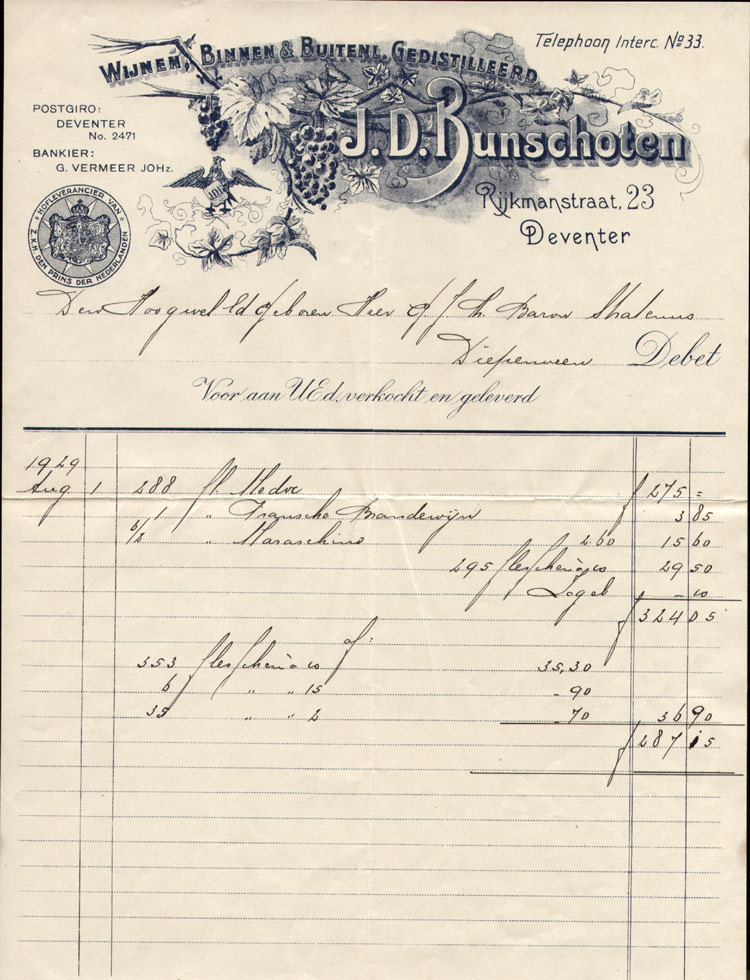 Telephoon Interc. No 33.
Wijnen, Binnen & Buitenl. Gedistilleerd
J. D. Bunschoten
POSTGIRO:
DEVENTER
No. 2471
BANKIER:
G. VERMEER JOHz.
HOFLEVERANCIER VAN
Z.K.H. DEN PRINS DER NEDERLANDEN
Rijkmanstraat, 23
Deventer
Den Hoogwel Ed. Geboren Heer
Th. Baron
Diepenveen Debet
Voor aan UEd. verkocht en geleverd
1929
Aug 1 288 fl. Medoc f 275 =
1 " Fransche Brandewijn 3 85
6/2 " Maraschino 2 60 15 60
295 flesschen a 10 29 50
Zegel - 10
f 324 05
af:
353 flesschen a 10 35,30
6 " " 15 - 90
35 " " 2 - 70 36 90
f 287 15